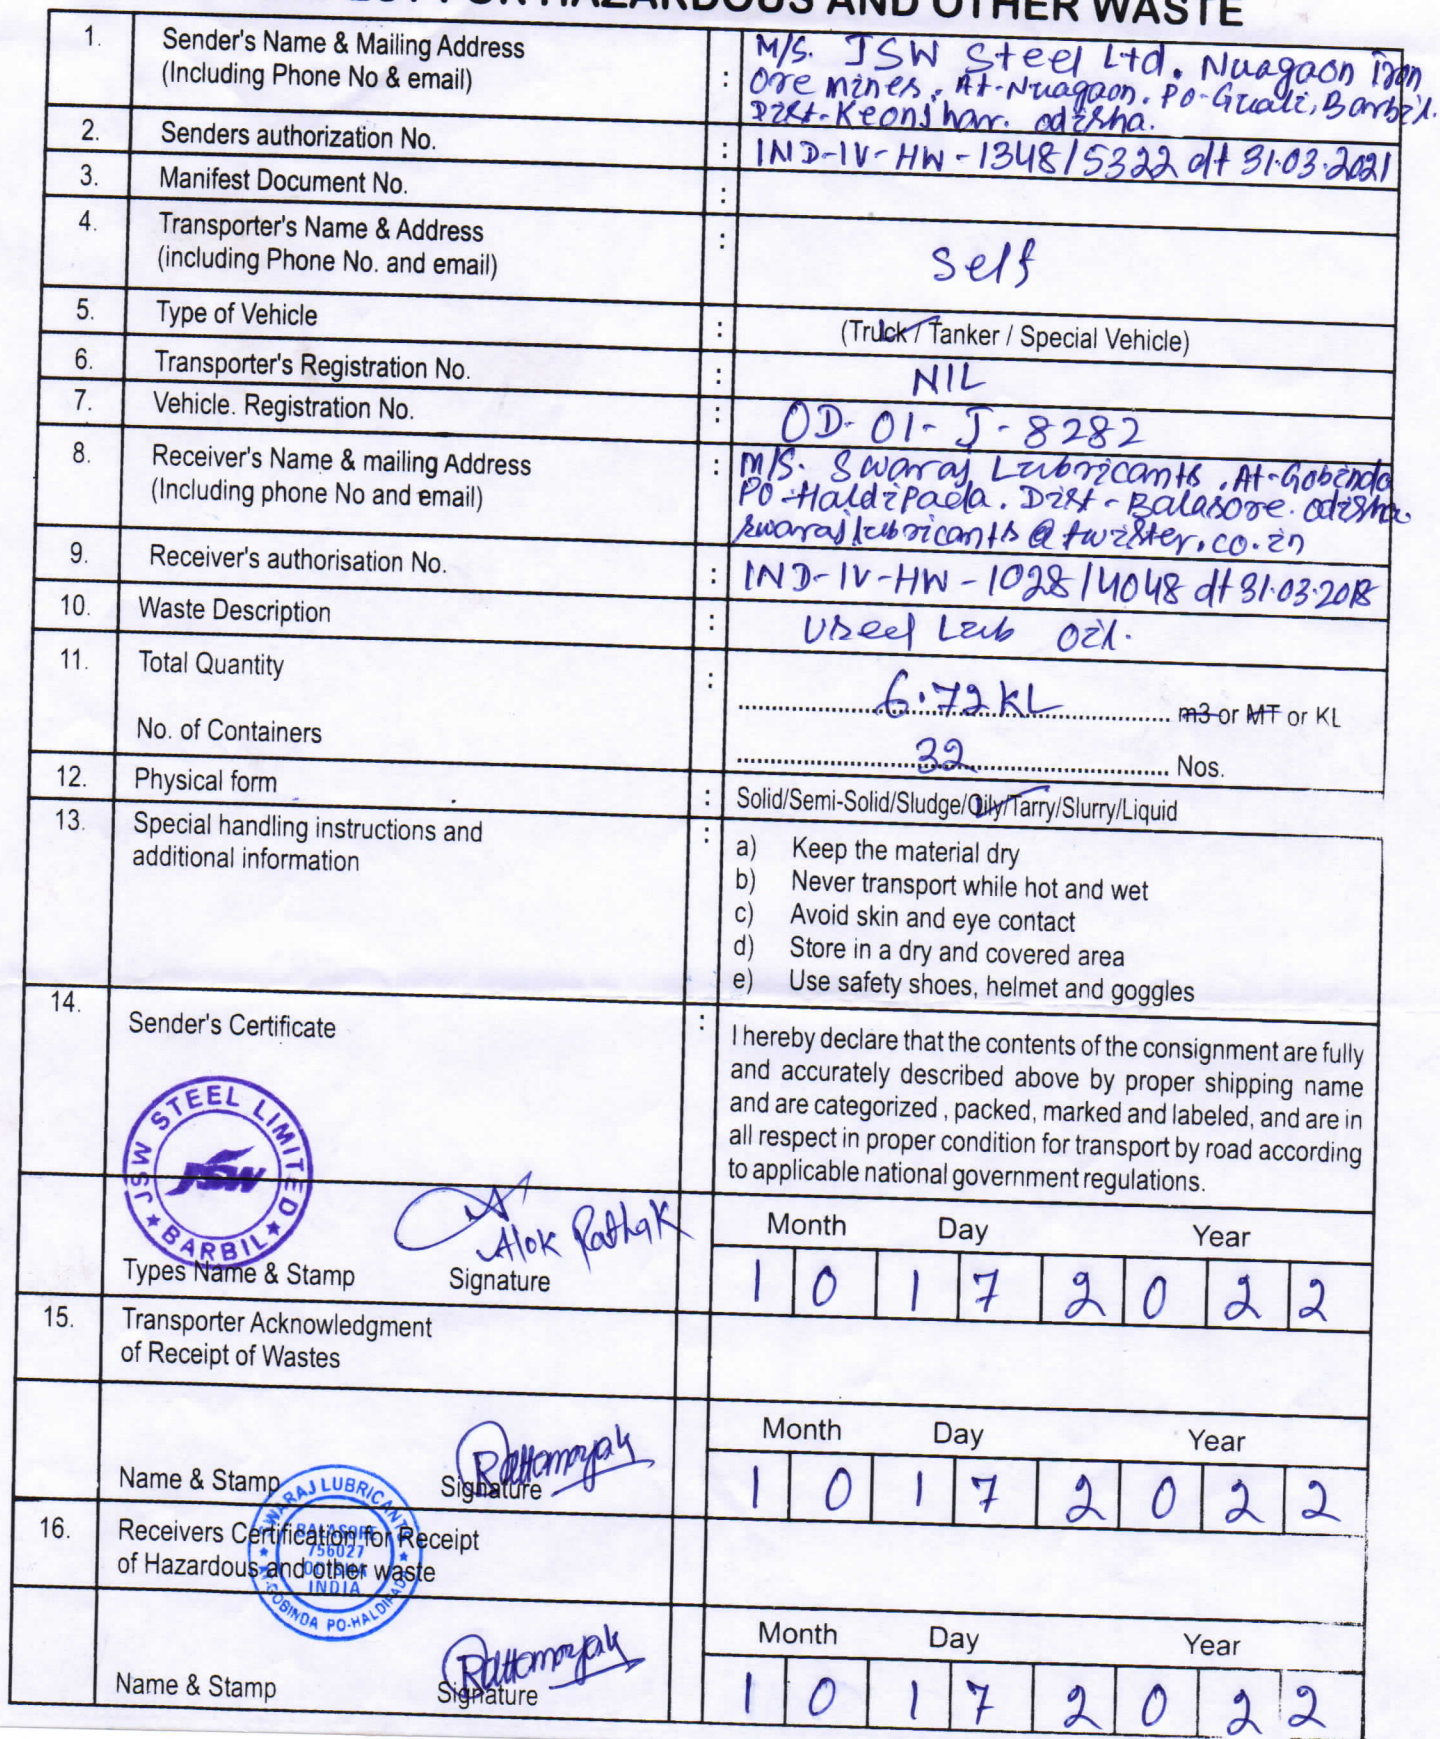 FOR HAZARDOUS AND OTHER WASTE
1. Sender's Name & Mailing Address : M/S. JSW Steel Ltd. Nuagaon Iron
(Including Phone No & email) Ore mines. At-Nuagaon. Po-Guali, Barbil.
Dist-Keonjhar. odisha.
2. Senders authorization No. : IND-IV-HW-1348/5322 dt 31.03.2021
3. Manifest Document No. :
4. Transporter's Name & Address :
(including Phone No. and email) Self
5. Type of Vehicle : (Truck / Tanker / Special Vehicle)
6. Transporter's Registration No. : NIL
7. Vehicle. Registration No. : OD-01-J-8282
8. Receiver's Name & mailing Address : M/S. Swaraj Lubricants. At-Gobinda
(Including phone No and email) PO-Haldipada. Dist-Balasore. odisha.
swarajlubricants@twister.co.in
9. Receiver's authorisation No. : IND-IV-HW-1028/4048 dt 31.03.2018
10. Waste Description : Used Lub oil.
11. Total Quantity : 6.72 KL m3 or MT or KL
No. of Containers 32 Nos.
12. Physical form : Solid/Semi-Solid/Sludge/Oily/Tarry/Slurry/Liquid
13. Special handling instructions and : a) Keep the material dry
additional information b) Never transport while hot and wet
c) Avoid skin and eye contact
d) Store in a dry and covered area
e) Use safety shoes, helmet and goggles
14. Sender's Certificate : I hereby declare that the contents of the consignment are fully
and accurately described above by proper shipping name
and are categorized , packed, marked and labeled, and are in
all respect in proper condition for transport by road according
to applicable national government regulations.
JSW STEEL LIMITED
JSW
★ BARBIL ★
Alok Pathak
Types Name & Stamp Signature
Month Day Year
1 0 1 7 2 0 2 2
15. Transporter Acknowledgment
of Receipt of Wastes
Name & Stamp Signature
Month Day Year
1 0 1 7 2 0 2 2
16. Receivers Certification for Receipt
of Hazardous and other waste
SWARAJ LUBRICANTS
BALASORE
756027
ODISHA
INDIA
★ AT-GOBINDA PO-HALDIPADA ★
Name & Stamp Signature
Month Day Year
1 0 1 7 2 0 2 2